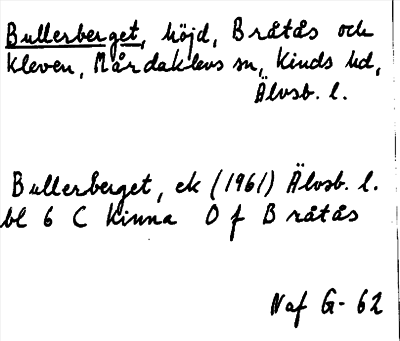 Bullerberget, höjd, Bråtås och
Kleven, Mårdaklevs sn, Kinds hd,
Älvsb. l.
Bullerberget, ek (1961) Älvsb. l.
bl 6 C Kinna O f Bråtås
Naf G- 62